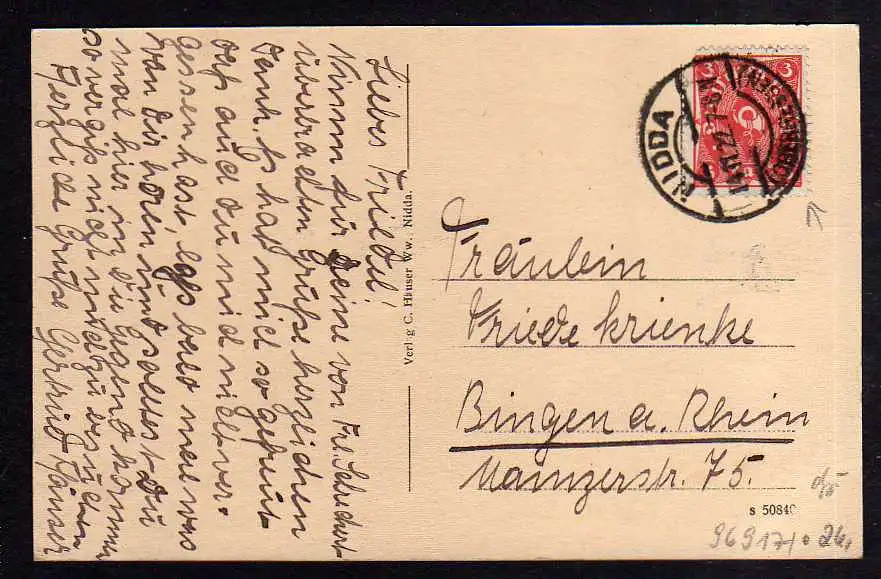 Liebes Friedel!
Nimm für deine von Frl. Schuchert
überbrachten Grüße herzlichen
Dank. Es hat mich so gefreut
daß auch du mich nicht ver-
gessen hast, laß bald mal was
von dir hören und solltest Du
mal hier in die Gegend kommen
so vergiß nicht uns zu besuchen
Herzliche Grüße Gertrud Häuser
Verlag C. Häuser Ww., Nidda.
NIDDA
3
Fräulein
Friede Krienke
Bingen a. Rhein
Mainzerstr. 75.
s 50840